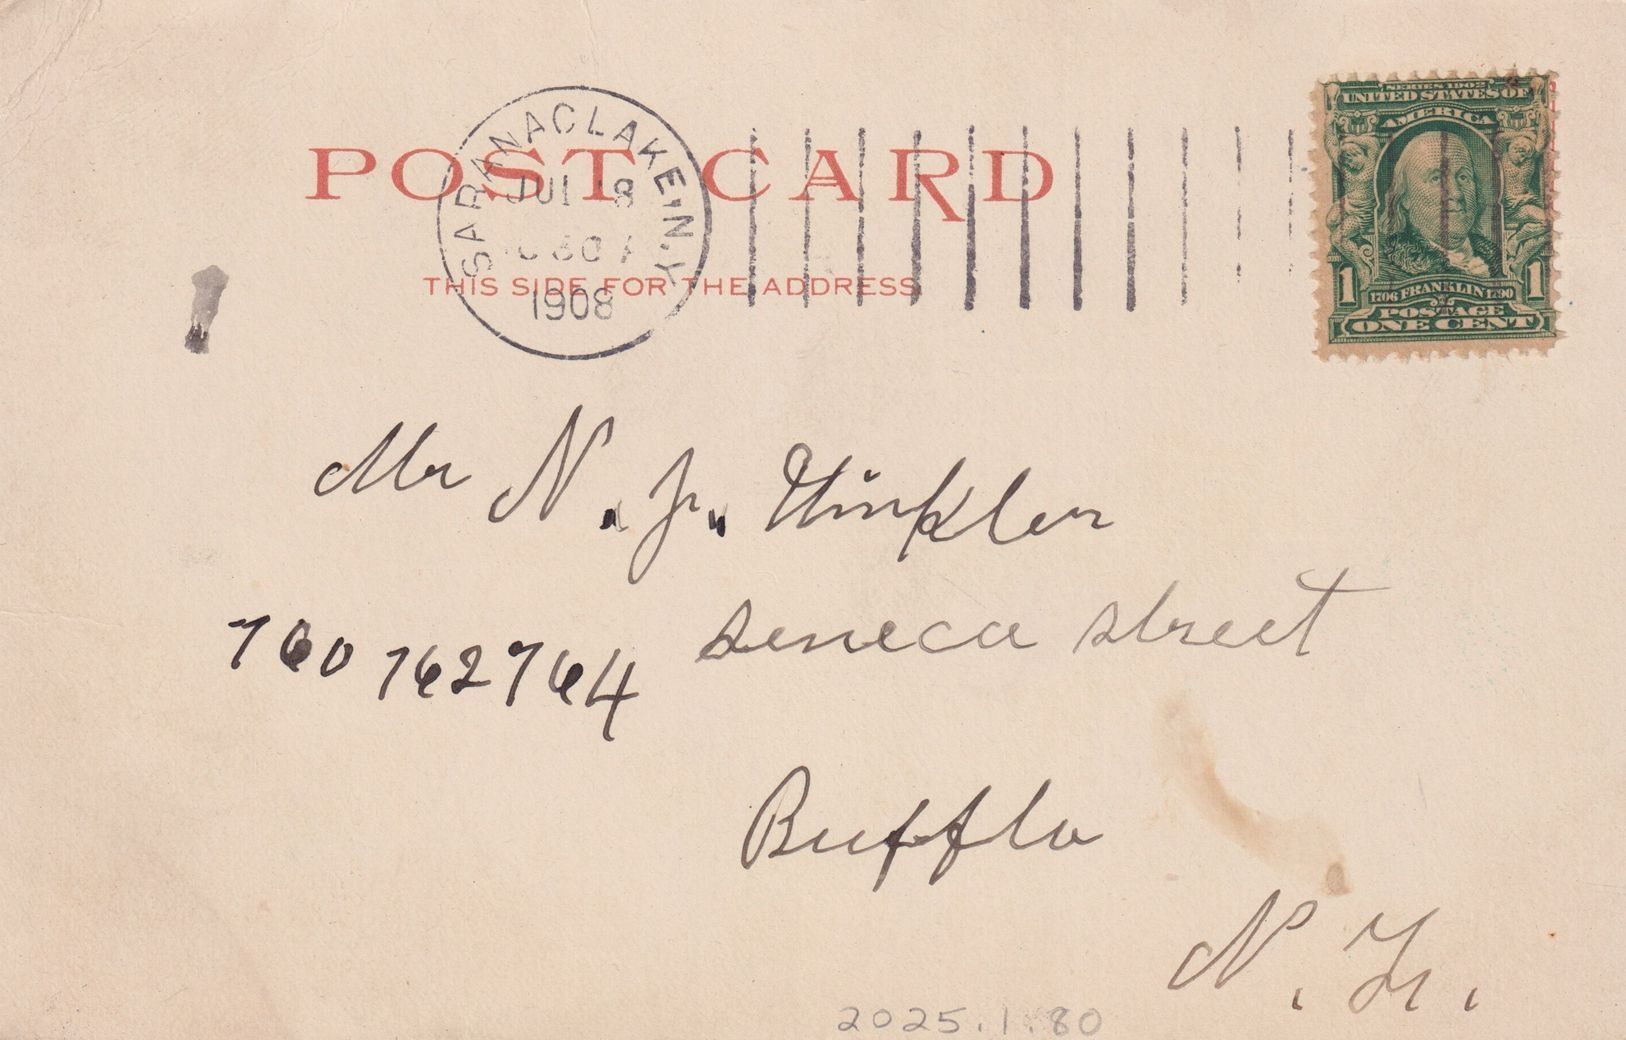 POST CARD
THIS SIDE FOR THE ADDRESS
SARANAC LAKE, N.Y.
JUL 8
1908
SERIES 1902
UNITED STATES OF
AMERICA
1 1706 FRANKLIN 1790 1
POSTAGE
ONE CENT
Mr N. J. Winkler
760 762 764 Seneca street
Bufflo
N. Y.
2025.1.80